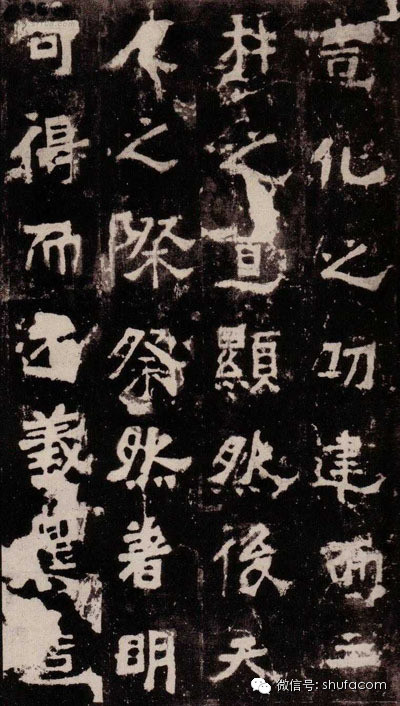 化之功建而
之道顯然後天
人之際粲然著明
可得而述義農
微信号: shufacom